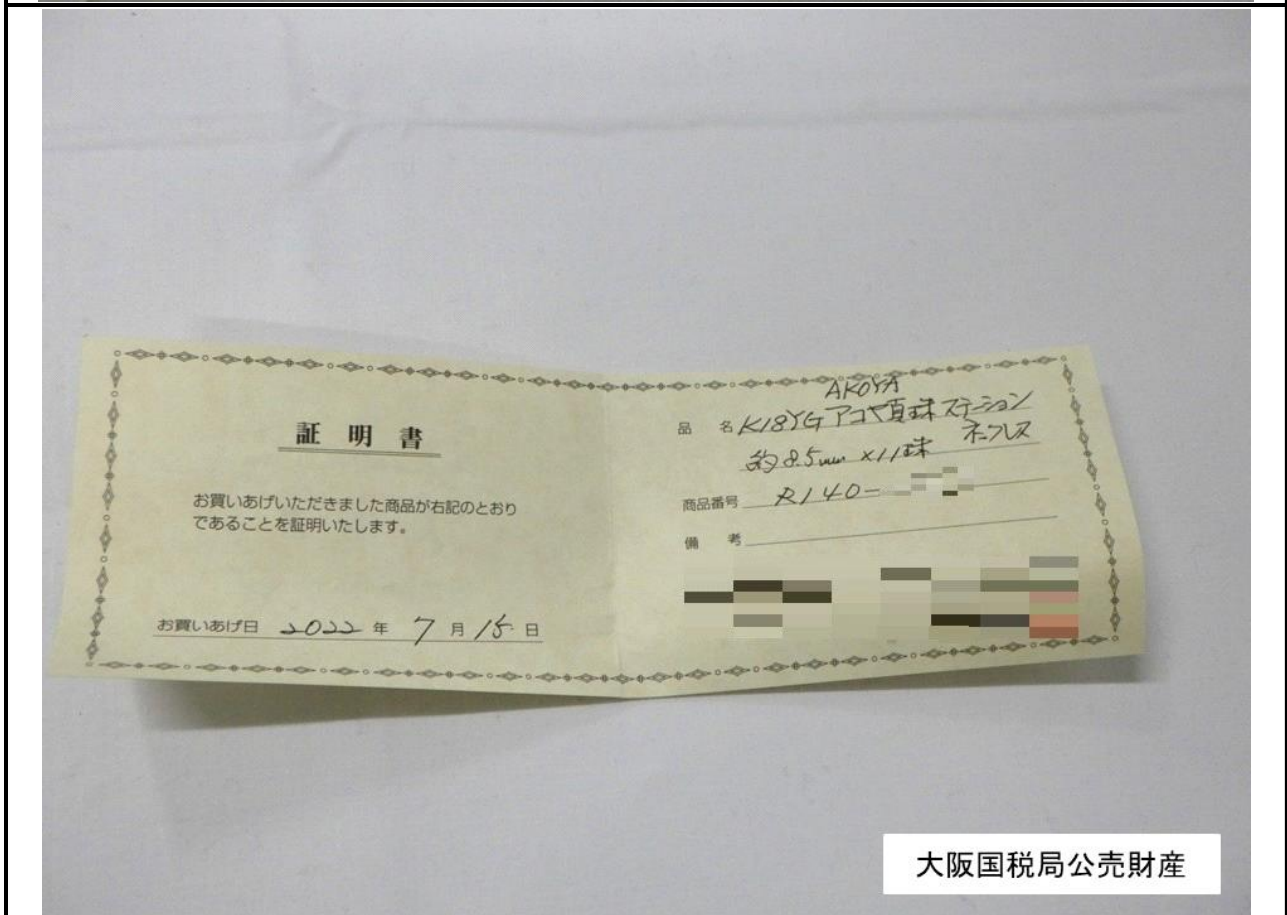 証明書
お買いあげいただきました商品が右記のとおり
であることを証明いたします。
お買いあげ日 2022 年 7 月 15 日
AKOYA
品 名 K18YG アコヤ真珠 ステーション
ネックレス
約 8.5mm ×11珠
商品番号 R140-
備 考
大阪国税局公売財産